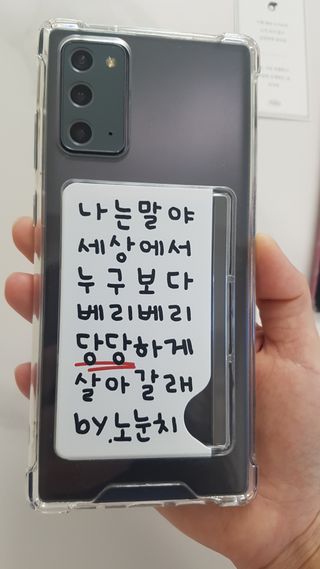 나는말야
세상에서
누구보다
베리베리
당당하게
살아갈래
by.노눈치